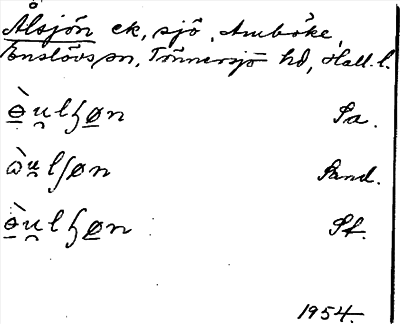 Ålsjön ek, sjö, Amböke,
Enslövs sn, Tönnersjö hd, Hall. l.
ɵ̀u̯lʃøn Sa.
ɷ̀u̯lʃøn Sand.
ɵ̀u̯lʃøn St.
1954.